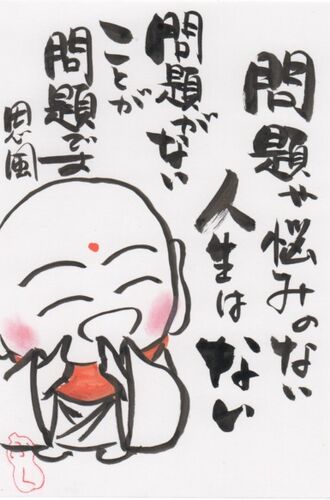 問題や悩みのない
人生はない
問題がない
ことが
問題です
思風